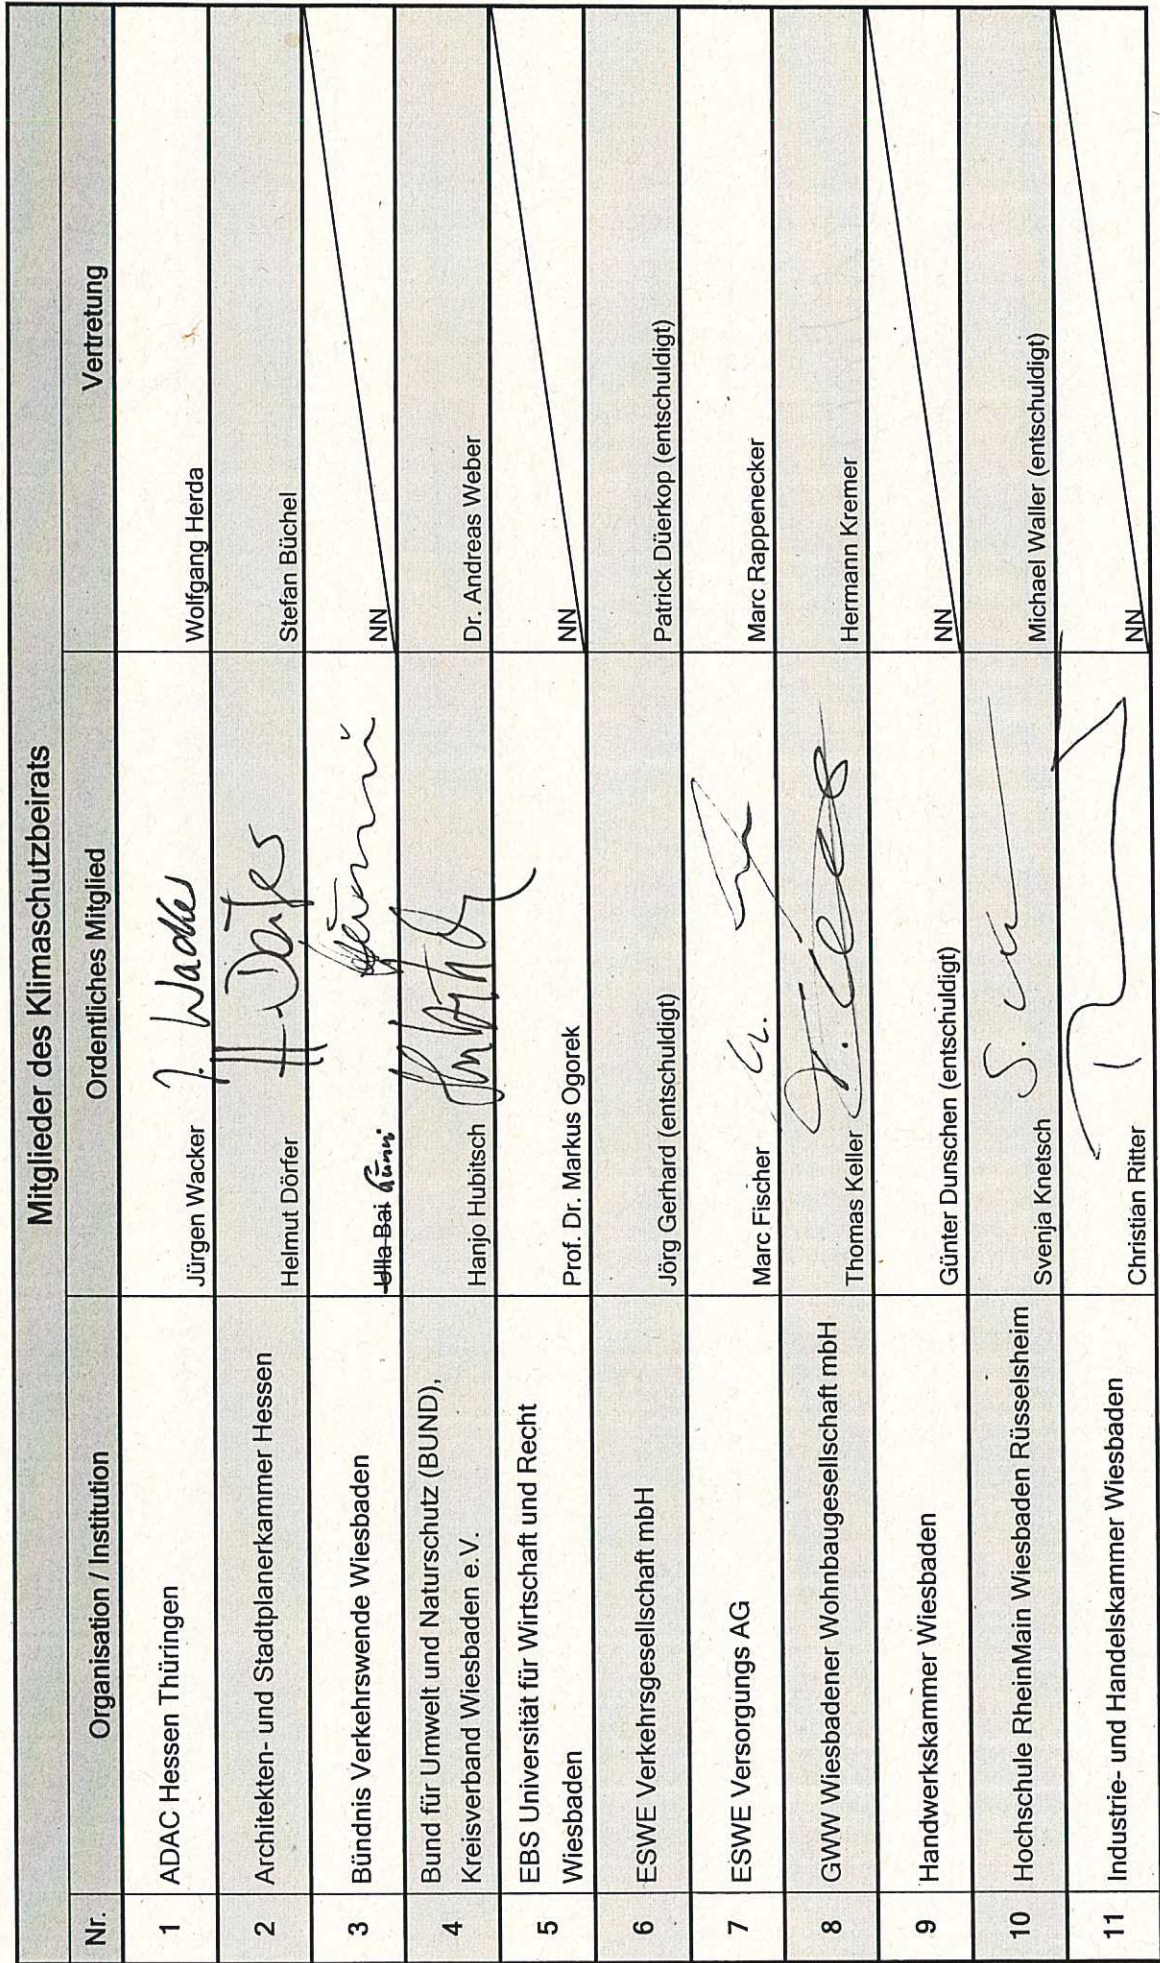 Mitglieder des Klimaschutzbeirats
Nr. Organisation / Institution Ordentliches Mitglied Vertretung
1 ADAC Hessen Thüringen Jürgen Wacker J. Wacker Wolfgang Herda
2 Architekten- und Stadtplanerkammer Hessen Helmut Dörfer Stefan Büchel
3 Bündnis Verkehrswende Wiesbaden Ulla Bai NN
4 Bund für Umwelt und Naturschutz (BUND),
Kreisverband Wiesbaden e.V. Hanjo Hubitsch Dr. Andreas Weber
5 EBS Universität für Wirtschaft und Recht
Wiesbaden Prof. Dr. Markus Ogorek NN
6 ESWE Verkehrsgesellschaft mbH Jörg Gerhard (entschuldigt) Patrick Düerkop (entschuldigt)
7 ESWE Versorgungs AG Marc Fischer Marc Rappenecker
8 GWW Wiesbadener Wohnbaugesellschaft mbH Thomas Keller Hermann Kremer
9 Handwerkskammer Wiesbaden Günter Dunschen (entschuldigt) NN
10 Hochschule RheinMain Wiesbaden Rüsselsheim Svenja Knetsch Michael Waller (entschuldigt)
11 Industrie- und Handelskammer Wiesbaden Christian Ritter NN